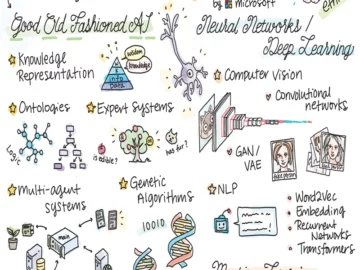 by Microsoft
Good Old Fashioned AI
Knowledge
Representation
wisdom
knowledge
info
Data
Ontologies
Expert Systems
Logic
is edible?
has fur?
Multi-agent
systems
Genetic
Algorithms
10010
Neural Networks /
Deep Learning
Computer Vision
Convolutional
networks
GAN/
VAE
NLP
Word2Vec
Embedding
Recurrent
Networks
Transformers